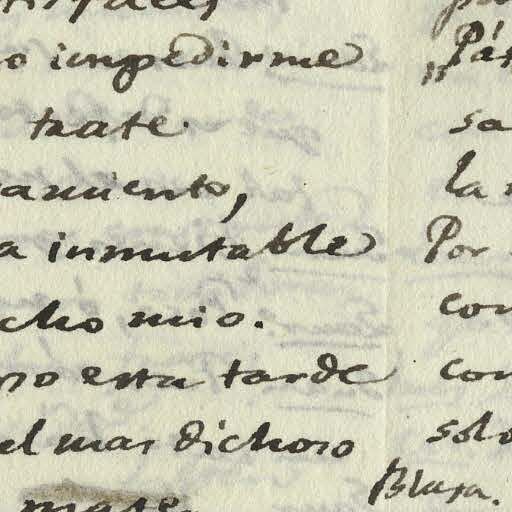 impedirme
trate.
amiento,
a inmutable
cho mio.
no esta tarde
el mas dichoso
mate
Pás
sa
la
Por
con
con
solo
Blasa.